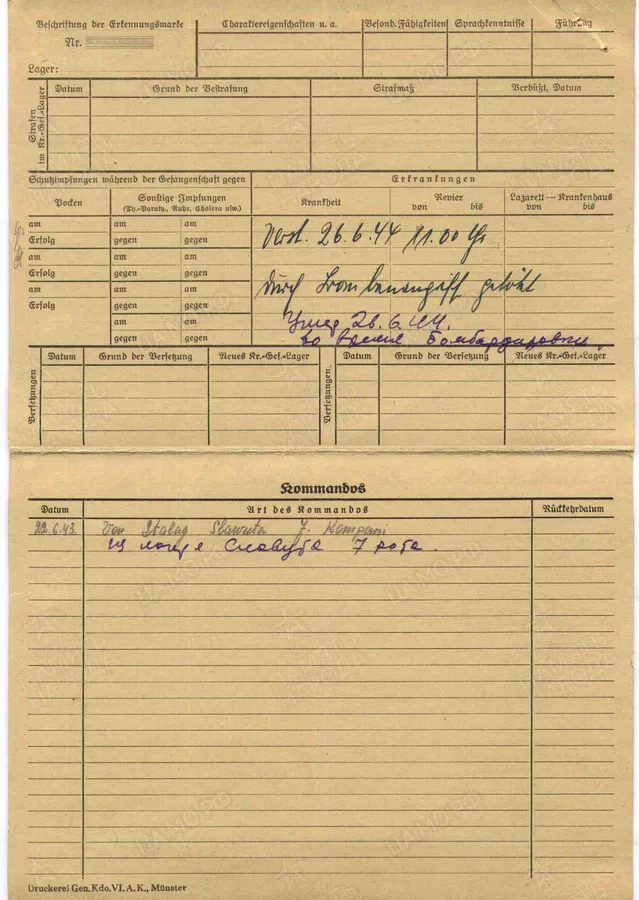 Beschriftung der Erkennungsmarke
Nr.
Lager:
Charaktereigenschaften u. a.
Besond. Fähigkeiten
Sprachkenntnisse
Führung
Strafen im Kr.-Gef.-Lager
Datum
Grund der Bestrafung
Strafmaß
Verbüßt, Datum
Schutzimpfungen während der Gefangenschaft gegen
Erkrankungen
Pocken
Sonstige Impfungen
(Ty.-Paraty., Ruhr, Cholera usw.)
Krankheit
Revier
von bis
Lazarett — Krankenhaus
von bis
am am am
Erfolg gegen gegen
am am am
Erfolg gegen gegen
am am am
Erfolg gegen gegen
am am
gegen gegen
Verst. 26.6.44 11.00 Uhr
durch Bombenangriff getötet
Умер 26.6.44.
во время бомбардировки.
Versetzungen
Datum
Grund der Versetzung
Neues Kr.-Gef.-Lager
Versetzungen
Datum
Grund der Versetzung
Neues Kr.-Gef.-Lager
Kommandos
Datum
Art des Kommandos
Rückkehrdatum
22.6.43. Von Stalag Slawuta 7. Kompani
Из лагеря Славута 7 рота.
Druckerei Gen. Kdo. VI. A. K., Münster
ЦАМО.РФ
ПАМЯТЬ НАРОДА